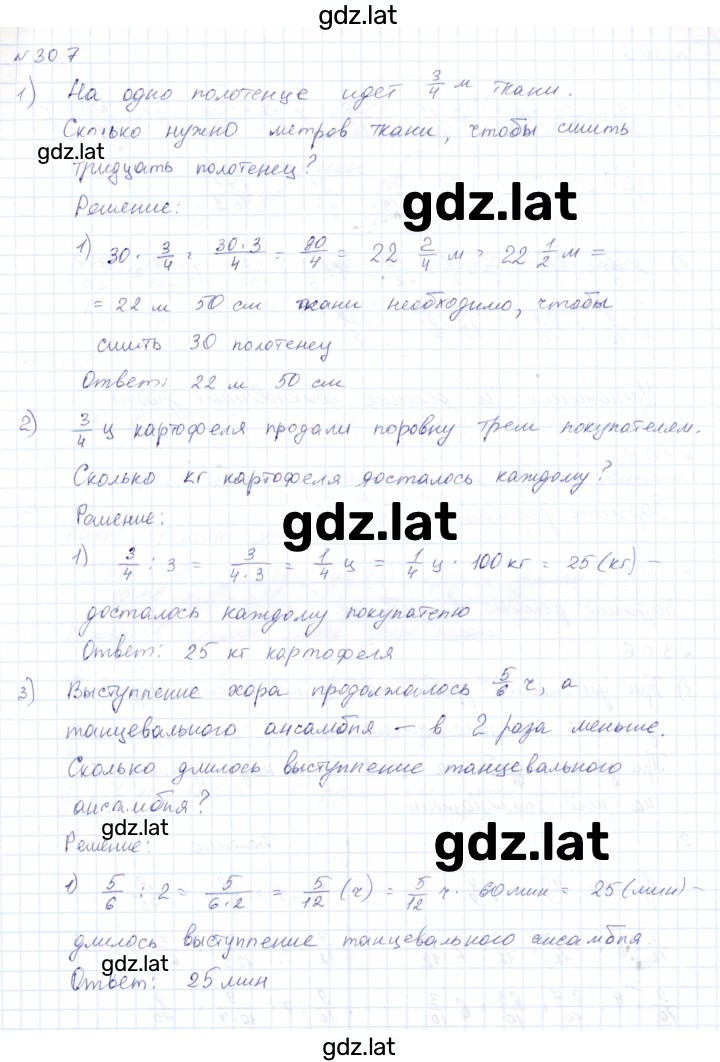 gdz.lat
№307
1) На одно полотенце идет 3/4 м ткани.
Сколько нужно метров ткани, чтобы сшить
gdz.lat
тридцать полотенец?
gdz.lat
Решение:
1) 30 · 3/4 = 30·3/4 = 90/4 = 22 2/4 м = 22 1/2 м =
= 22 м 50 см ткани необходимо, чтобы
сшить 30 полотенец
Ответ: 22 м 50 см
2) 3/4 ц картофеля продали поровну трем покупателем.
Сколько кг картофеля досталось каждому?
Решение:
gdz.lat
1) 3/4 : 3 = 3/4·3 = 1/4 ц = 1/4 ц · 100 кг = 25 (кг) –
досталось каждому покупателю
Ответ: 25 кг картофеля
3) Выступление хора продолжалось 5/6 ч, а
танцевального ансамбля – в 2 раза меньше.
Сколько длилось выступление танцевального
ансамбля?
gdz.lat
Решение:
gdz.lat
1) 5/6 : 2 = 5/6·2 = 5/12 (ч) = 5/12 ч · 60 мин = 25 (мин) –
длилось выступление танцевального ансамбля
gdz.lat
Ответ: 25 мин
gdz.lat